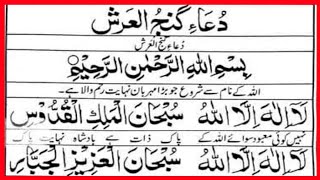 دُعَاءِ گنجُ العَرش
دُعَاءِ گنجُ العَرش
بِسْمِ اللهِ الرَّحْمٰنِ الرَّحِيْمِ
اللہ کے نام سے شروع جو بڑا مہربان نہایت رحم والا ہے۔
لَا اِلٰهَ اِلَّا اللهُ سُبْحَانَ الْمَلِكِ الْقُدُّوْسِ
نہیں کوئی معبود سوائے اللہ کے پاک ذات ہے بادشاہ نہایت پاک
لَا اِلٰهَ اِلَّا اللهُ سُبْحَانَ الْعَزِيْزِ الْجَبَّارِ